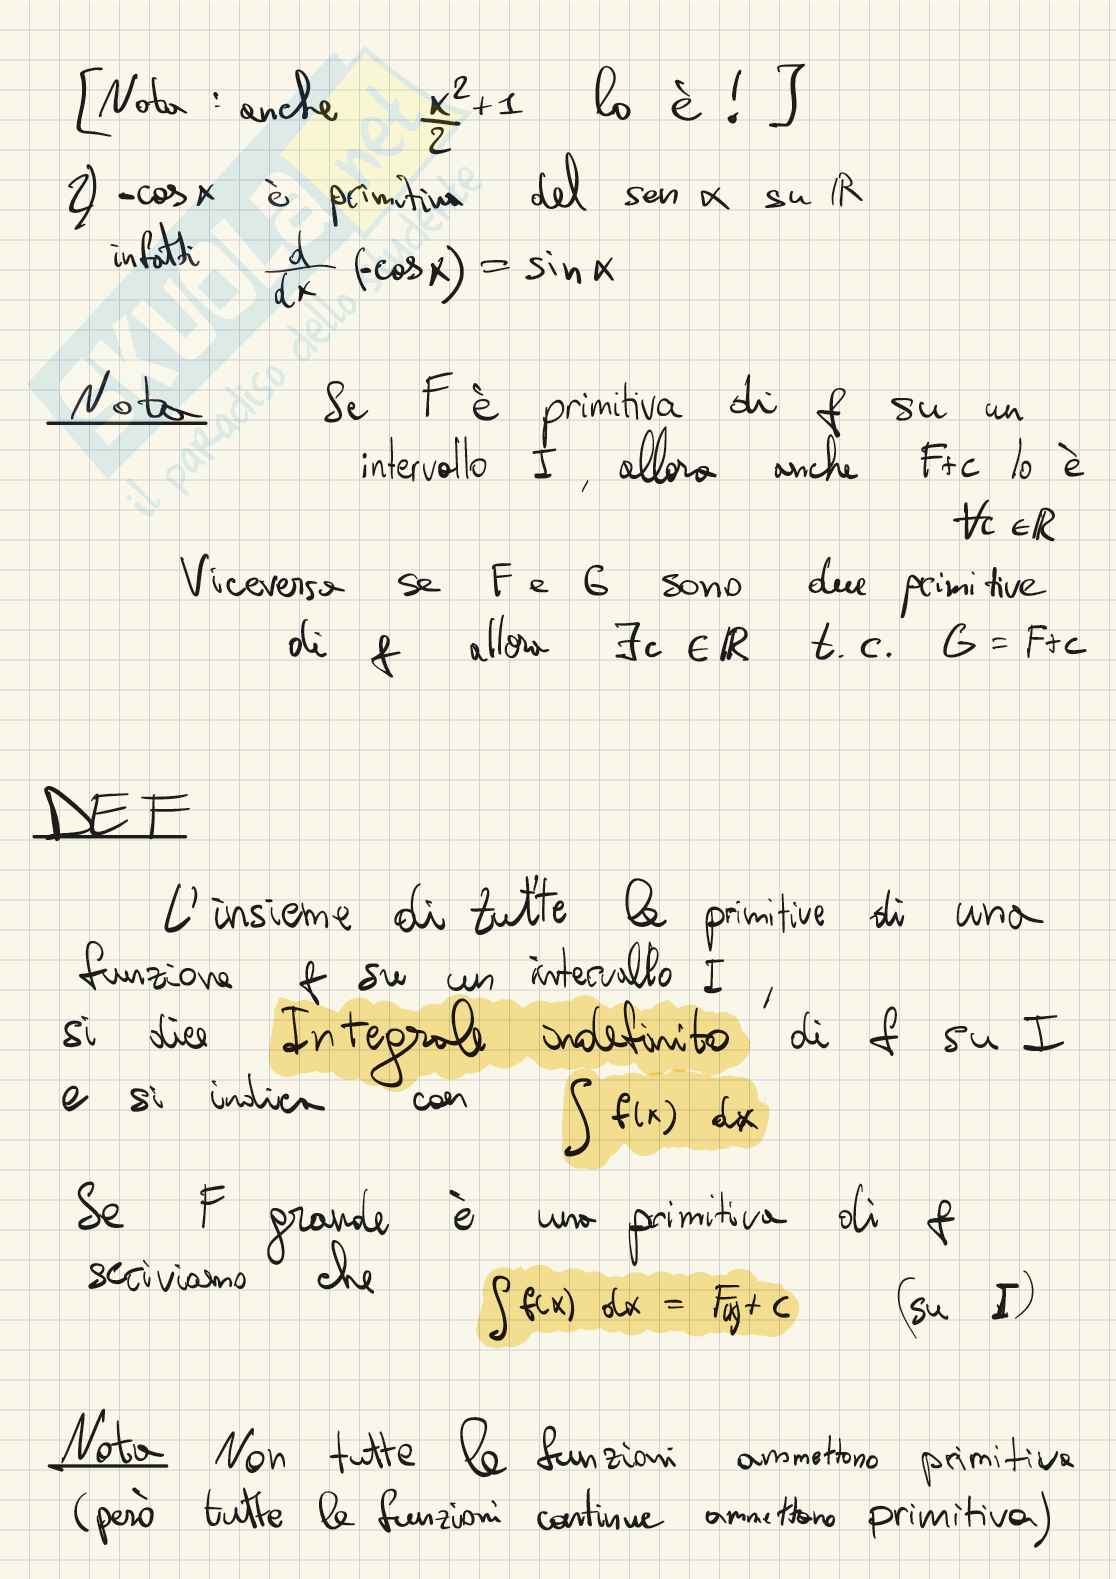 [Nota : anche x²/2 +1 lo è ! ]
2) -cos x è primitiva del sen x su ℝ
infatti d/dx (-cos x) = sin x
Nota Se F è primitiva di f su un
intervallo I , allora anche F+c lo è
∀c ∈ ℝ
Viceversa se F e G sono due primitive
di f allora ∃c ∈ ℝ t.c. G = F+c
DEF
L'insieme di tutte le primitive di una
funzione f su un intervallo I ,
si dice Integrale indefinito di f su I
e si indica con ∫ f(x) dx
Se F grande è una primitiva di f
scriviamo che ∫ f(x) dx = F(x) + c (su I)
Nota Non tutte le funzioni ammettono primitiva
(però tutte le funzioni continue ammettono primitiva)
SKUOLA.net
il paradiso dello studente